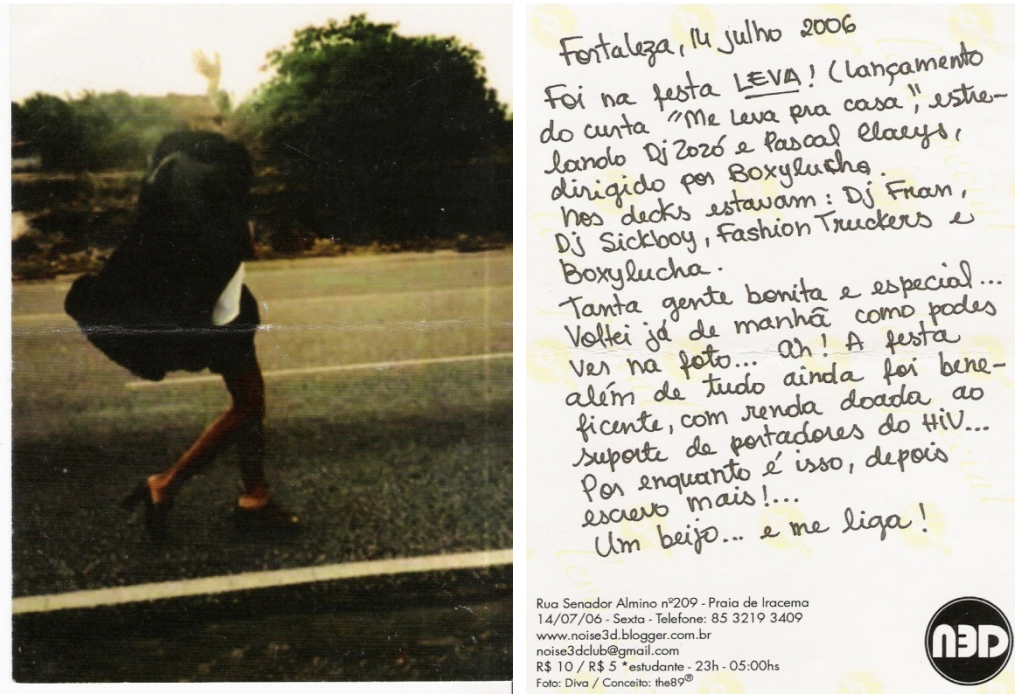 Fortaleza, 14 julho 2006
Foi na festa LEVA! (lançamento
do curta "Me Leva pra casa", estre-
lando Dj Zozó e Pascal Claeys,
dirigido por Boxylucha.
Nos decks estavam: Dj Fran,
Dj Sickboy, Fashion Truckers e
Boxylucha.
Tanta gente bonita e especial...
Voltei já de manhã como podes
ver na foto... ah! A festa
além de tudo ainda foi bene-
ficente, com renda doada ao
suporte de portadores do HiV...
Por enquanto é isso, depois
escrevo mais!...
Um beijo... e me liga!
Rua Senador Almino nº209 - Praia de Iracema
14/07/06 - Sexta - Telefone: 85 3219 3409
www.noise3d.blogger.com.br
noise3dclub@gmail.com
R$ 10 / R$ 5 *estudante - 23h - 05:00hs
Foto: Diva / Conceito: the89®
N3D